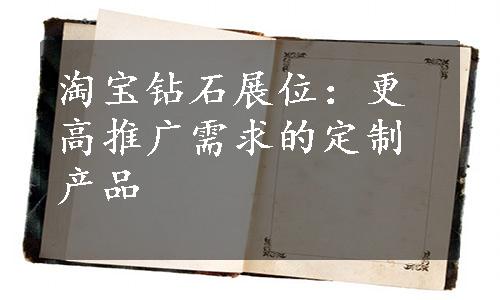 淘宝钻石展位：更
高推广需求的定制
产品